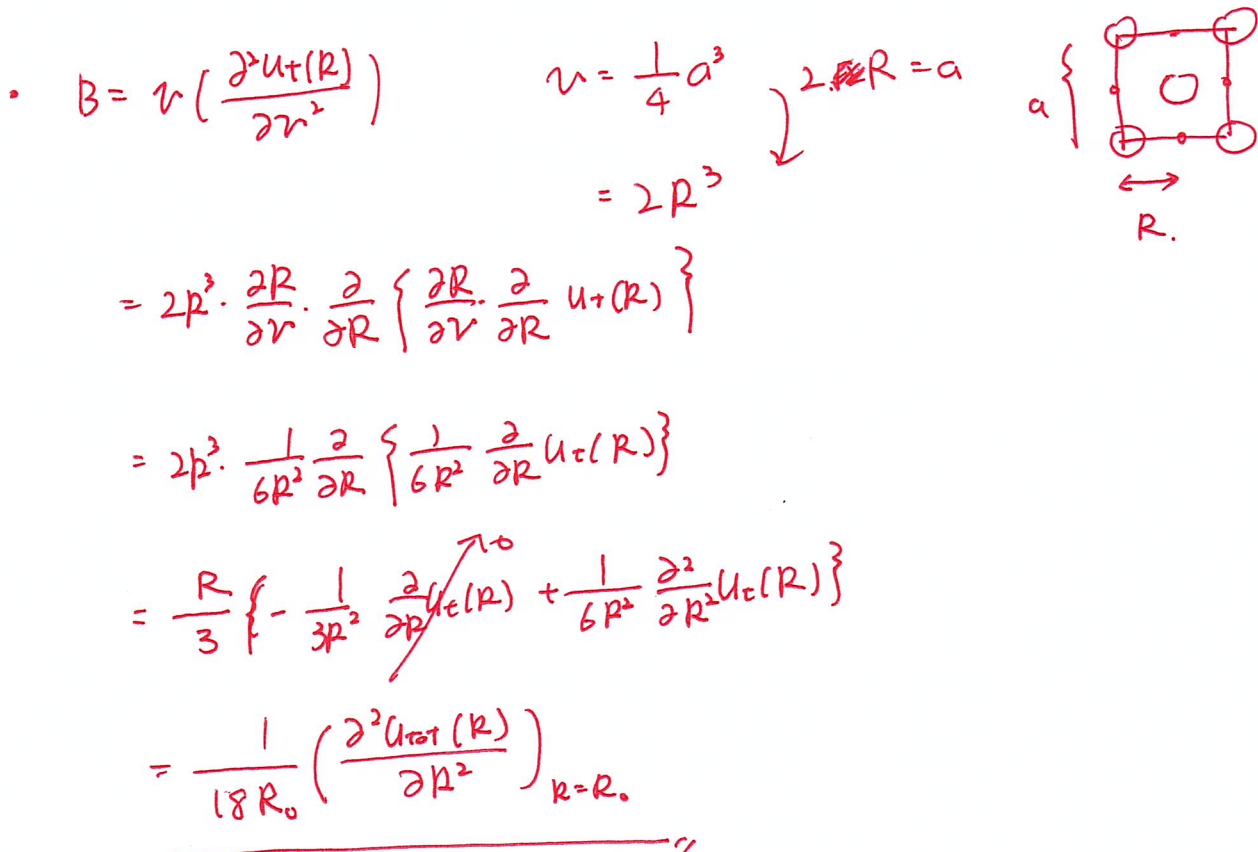 · B = v ( ∂²Ut(R) / ∂v² )    v = 1/4 a³    2R = a    a
= 2R³    R.
= 2R³ · ∂R/∂v · ∂/∂R { ∂R/∂v · ∂/∂R Ut(R) }
= 2R³ · 1/6R² ∂/∂R { 1/6R² ∂/∂R Ut(R) }
= R/3 { - 1/3R² ∂/∂R Ut(R) → 0 + 1/6R² ∂²/∂R² Ut(R) }
= 1/18R₀ ( ∂²Utot(R) / ∂R² ) R=R₀